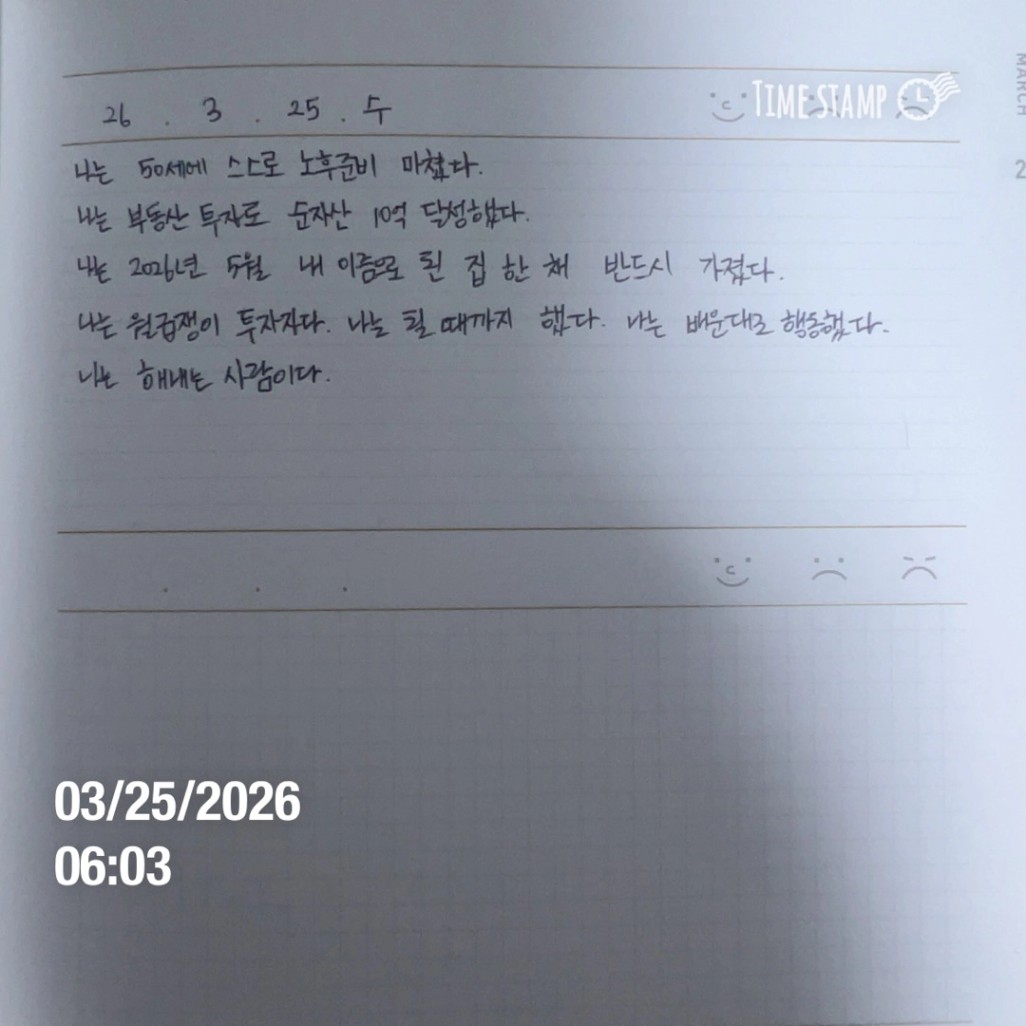 MARCH
2
TIMESTAMP
26 . 3 . 25 . 수
나는 50세에 스스로 노후준비 마쳤다.
나는 부동산 투자로 순자산 10억 달성했다.
나는 2026년 5월 내 이름으로 된 집 한 채 반드시 가졌다.
나는 월급쟁이 투자자다. 나는 될 때까지 했다. 나는 배운대로 행동했다.
나는 해내는 사람이다.
03/25/2026
06:03